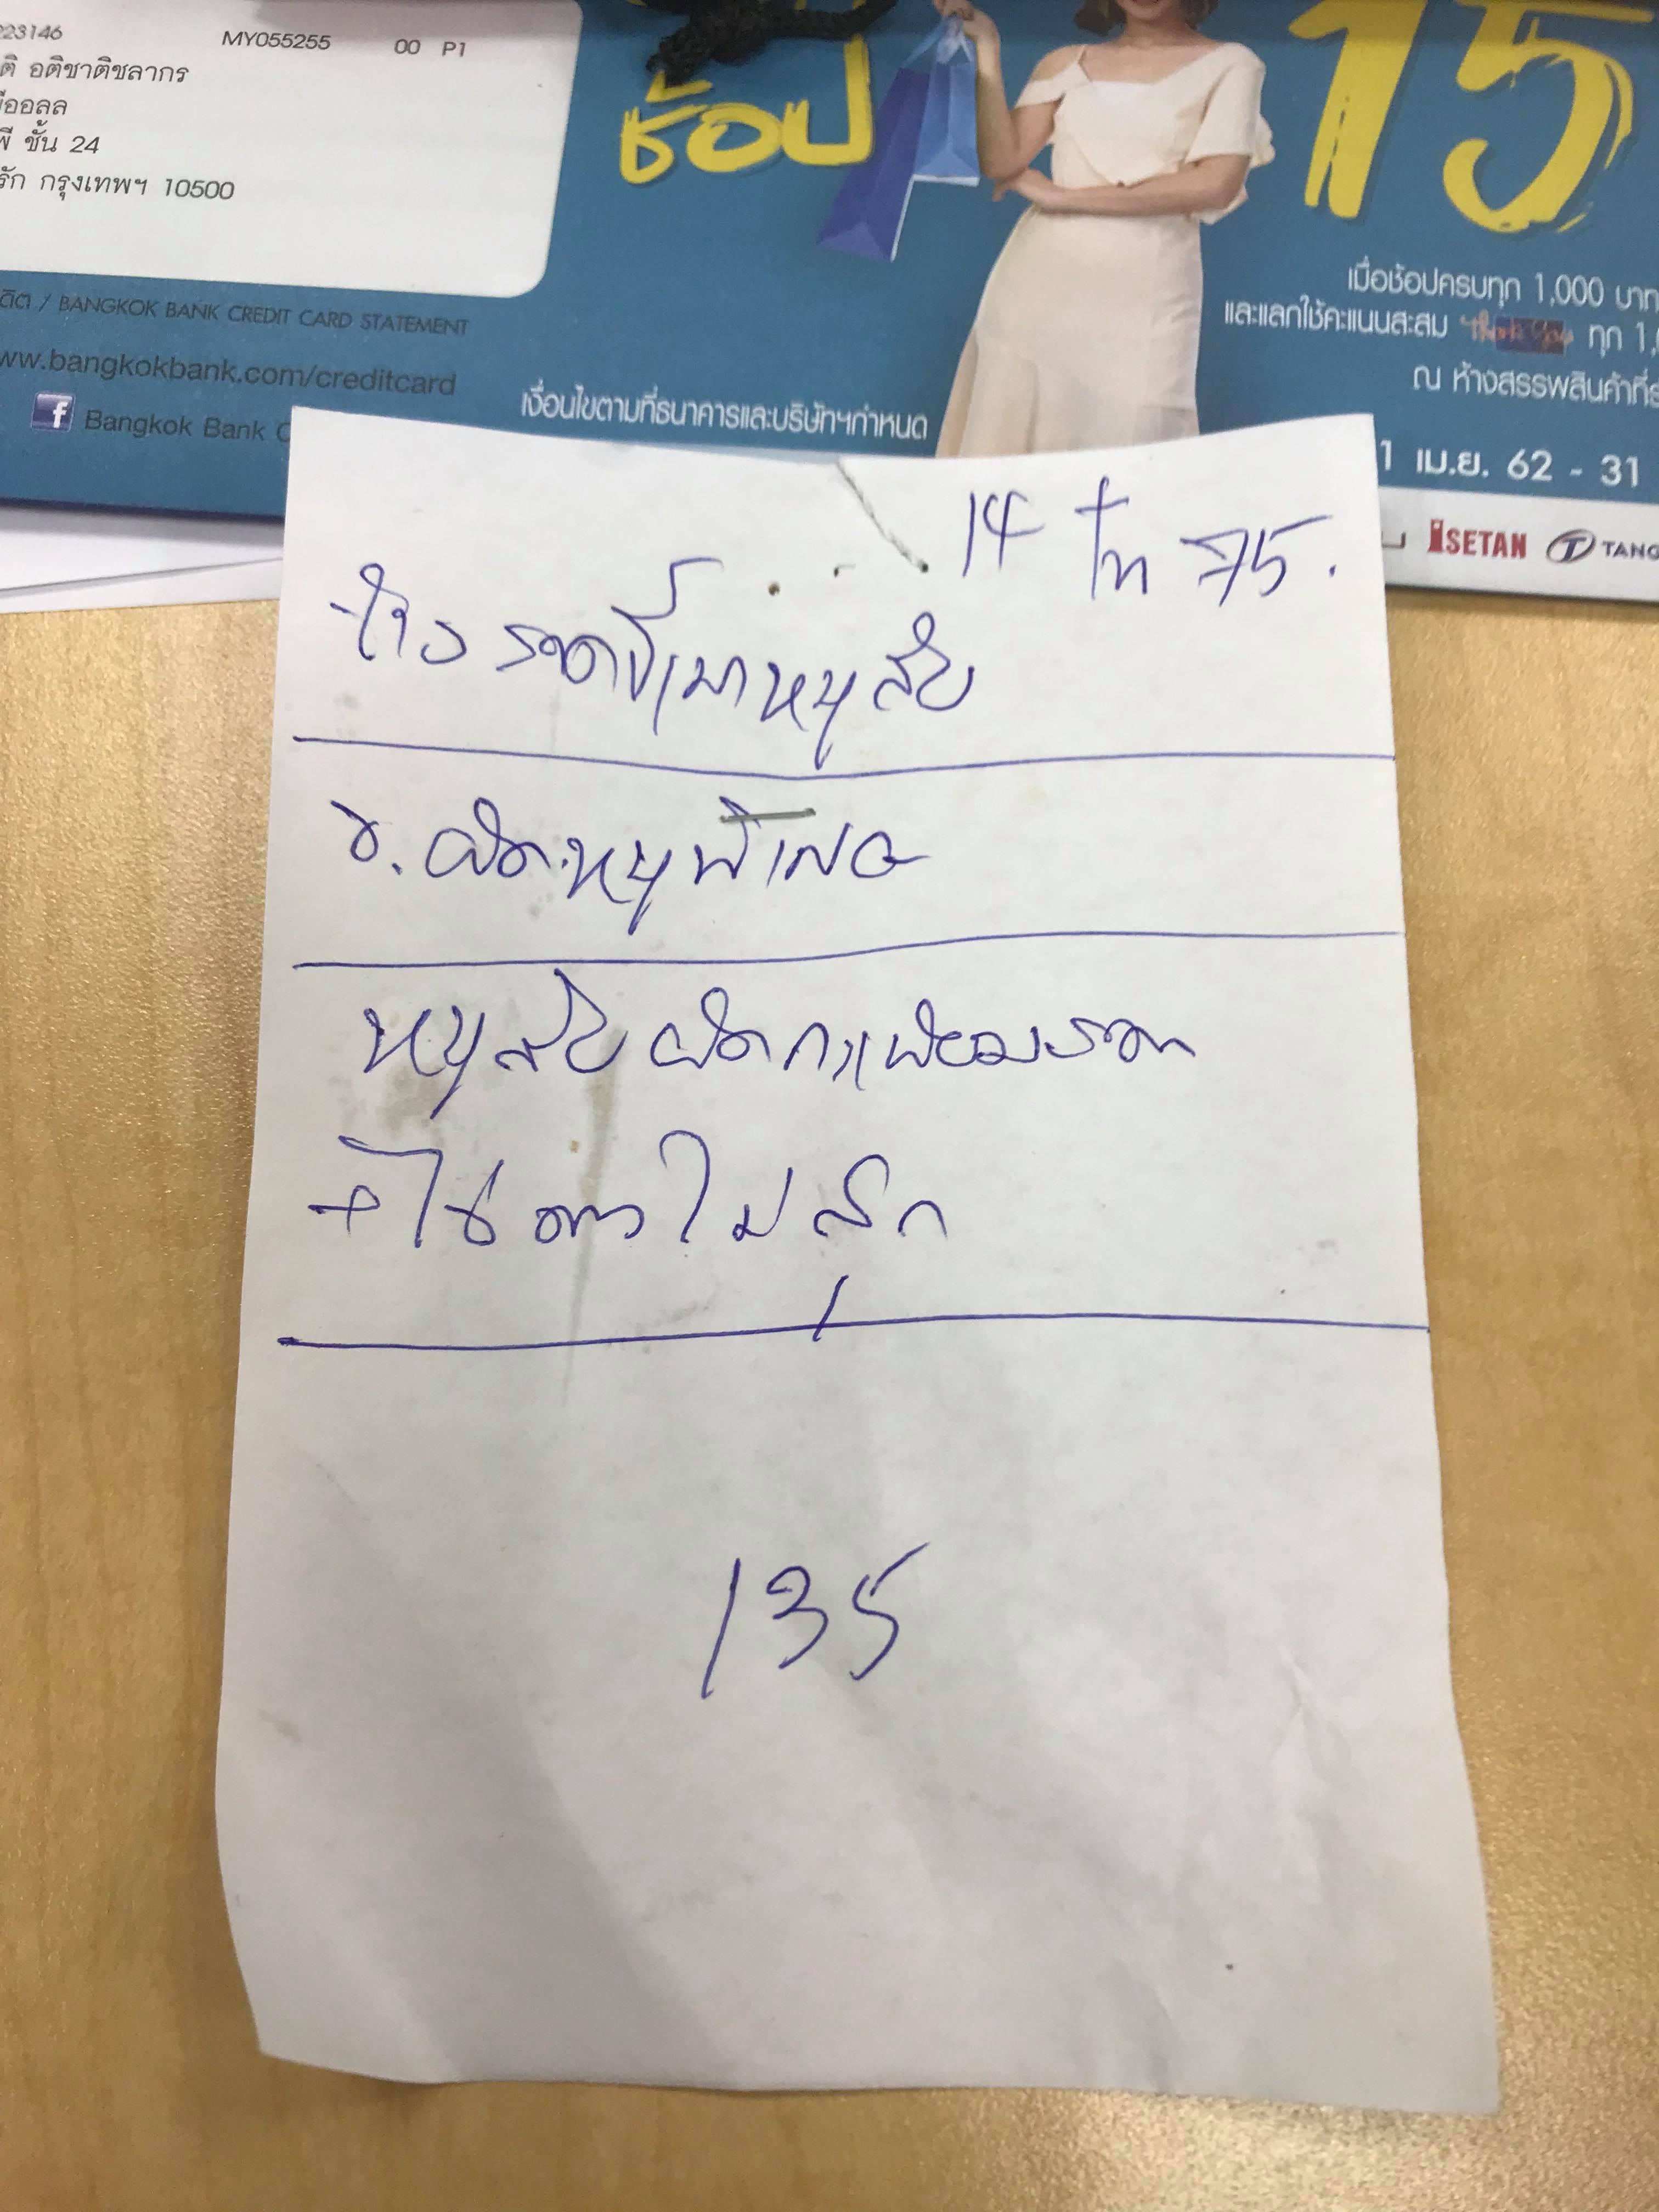 223146 MY055255 00 P1
ติ อติชาติชลากร
ออลล
พี ชั้น 24
รัก กรุงเทพฯ 10500
ช้อป
15
เมื่อช้อปครบทุก 1,000 บาท
และแลกใช้คะแนนสะสม Thank You ทุก 1,
ณ ห้างสรรพสินค้าที่
ดิต / BANGKOK BANK CREDIT CARD STATEMENT
ww.bangkokbank.com/creditcard
f Bangkok Bank C
เงื่อนไขตามที่ธนาคารและบริษัทฯกำหนด
1 เม.ย. 62 - 31
ISETAN TANG
14 75.
ราดขี้เมาหมูสับ
ข. ผัด หมู
หมูสับผัดกะเพรา ราด
+ ไข่ดาวไม่สุก
135